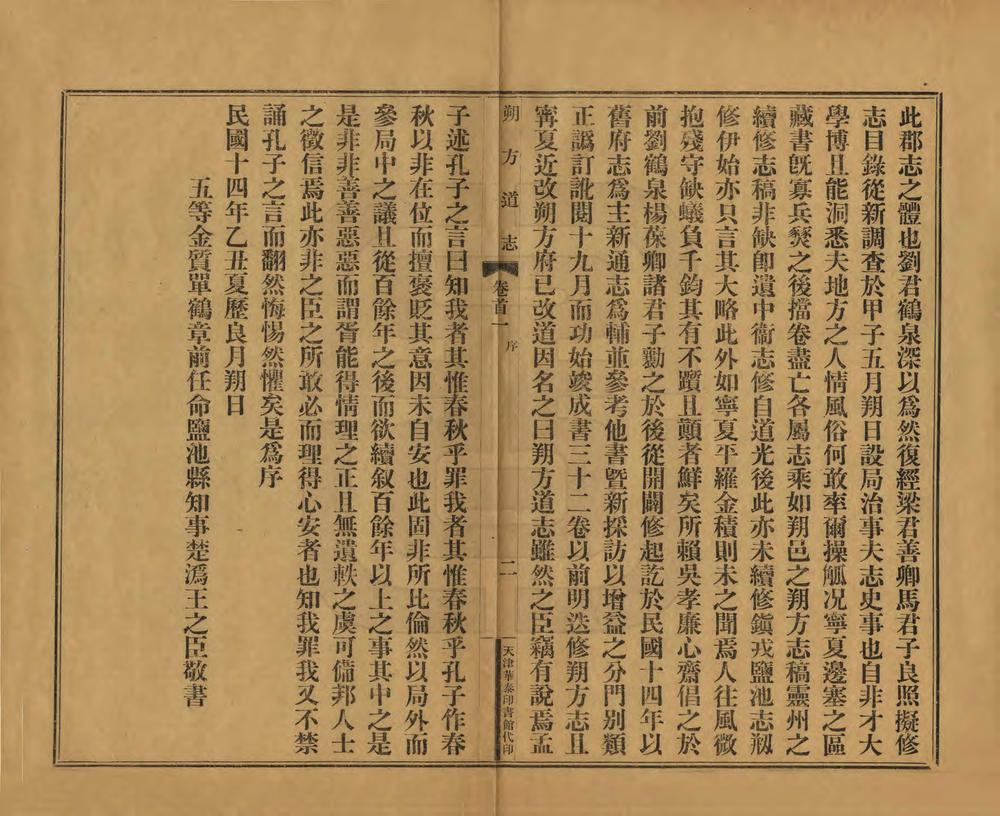 此郡志之體也劉君鶴泉深以爲然復經梁君善卿馬君子良照擬修
志目錄從新調查於甲子五月朔日設局治事夫志史事也自非才大
學博且能洞悉夫地方之人情風俗何敢率爾操觚况寧夏邊塞之區
藏書旣寡兵燹之後擋卷盡亡各屬志乘如朔邑之朔方志稿靈州之
續修志稿非缺卽遺中衞志修自道光後此亦未續修鎭戎鹽池志剏
修伊始亦只言其大略此外如寧夏平羅金積則未之聞焉人往風微
抱殘守缺蟻負千鈞其有不躓且顚者鮮矣所賴吳孝廉心齋倡之於
前劉鶴泉楊葆卿諸君子勷之於後從開闢修起訖於民國十四年以
舊府志爲主新通志爲輔並叅考他書曁新採訪以增益之分門别類
正譌訂訛閱十九月而功始竣成書三十二卷以前明迭修朔方志且
寗夏近改朔方府已改道因名之曰朔方道志雖然之臣竊有說焉孟
朔方道志
卷首一
序
二
天津華泰印書館代印
子述孔子之言曰知我者其惟春秋乎罪我者其惟春秋乎孔子作春
秋以非在位而擅褒貶其意因未自安也此固非所比倫然以局外而
參局中之議且從百餘年之後而欲續叙百餘年以上之事其中之是
是非非善善惡惡而謂胥能得情理之正且無遺軼之虞可備邦人士
之徵信焉此亦非之臣之所敢必而理得心安者也知我罪我又不禁
誦孔子之言而翻然悔惕然懼矣是爲序
民國十四年乙丑夏歷良月朔日
五等金質單鶴章前任命鹽池縣知事楚潙王之臣敬書